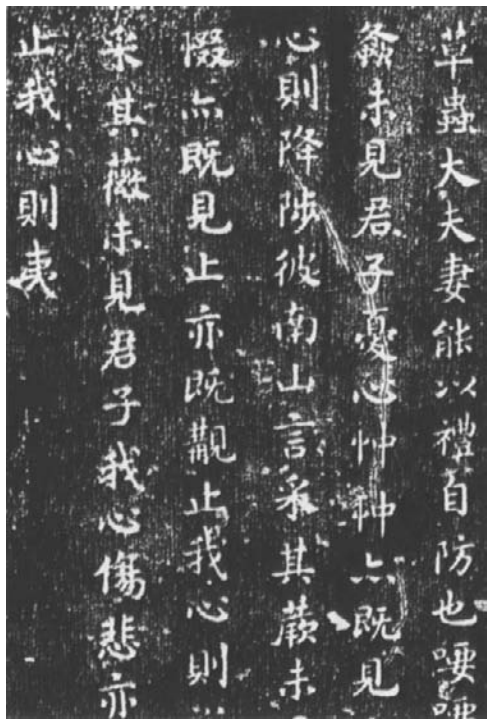 草蟲大夫妻能以禮自防也喓喓
螽未見君子憂心忡忡亦既見
心則降陟彼南山言采其蕨未
惙亦既見止亦既覯止我心則
采其薇未見君子我心傷悲亦
止我心則夷